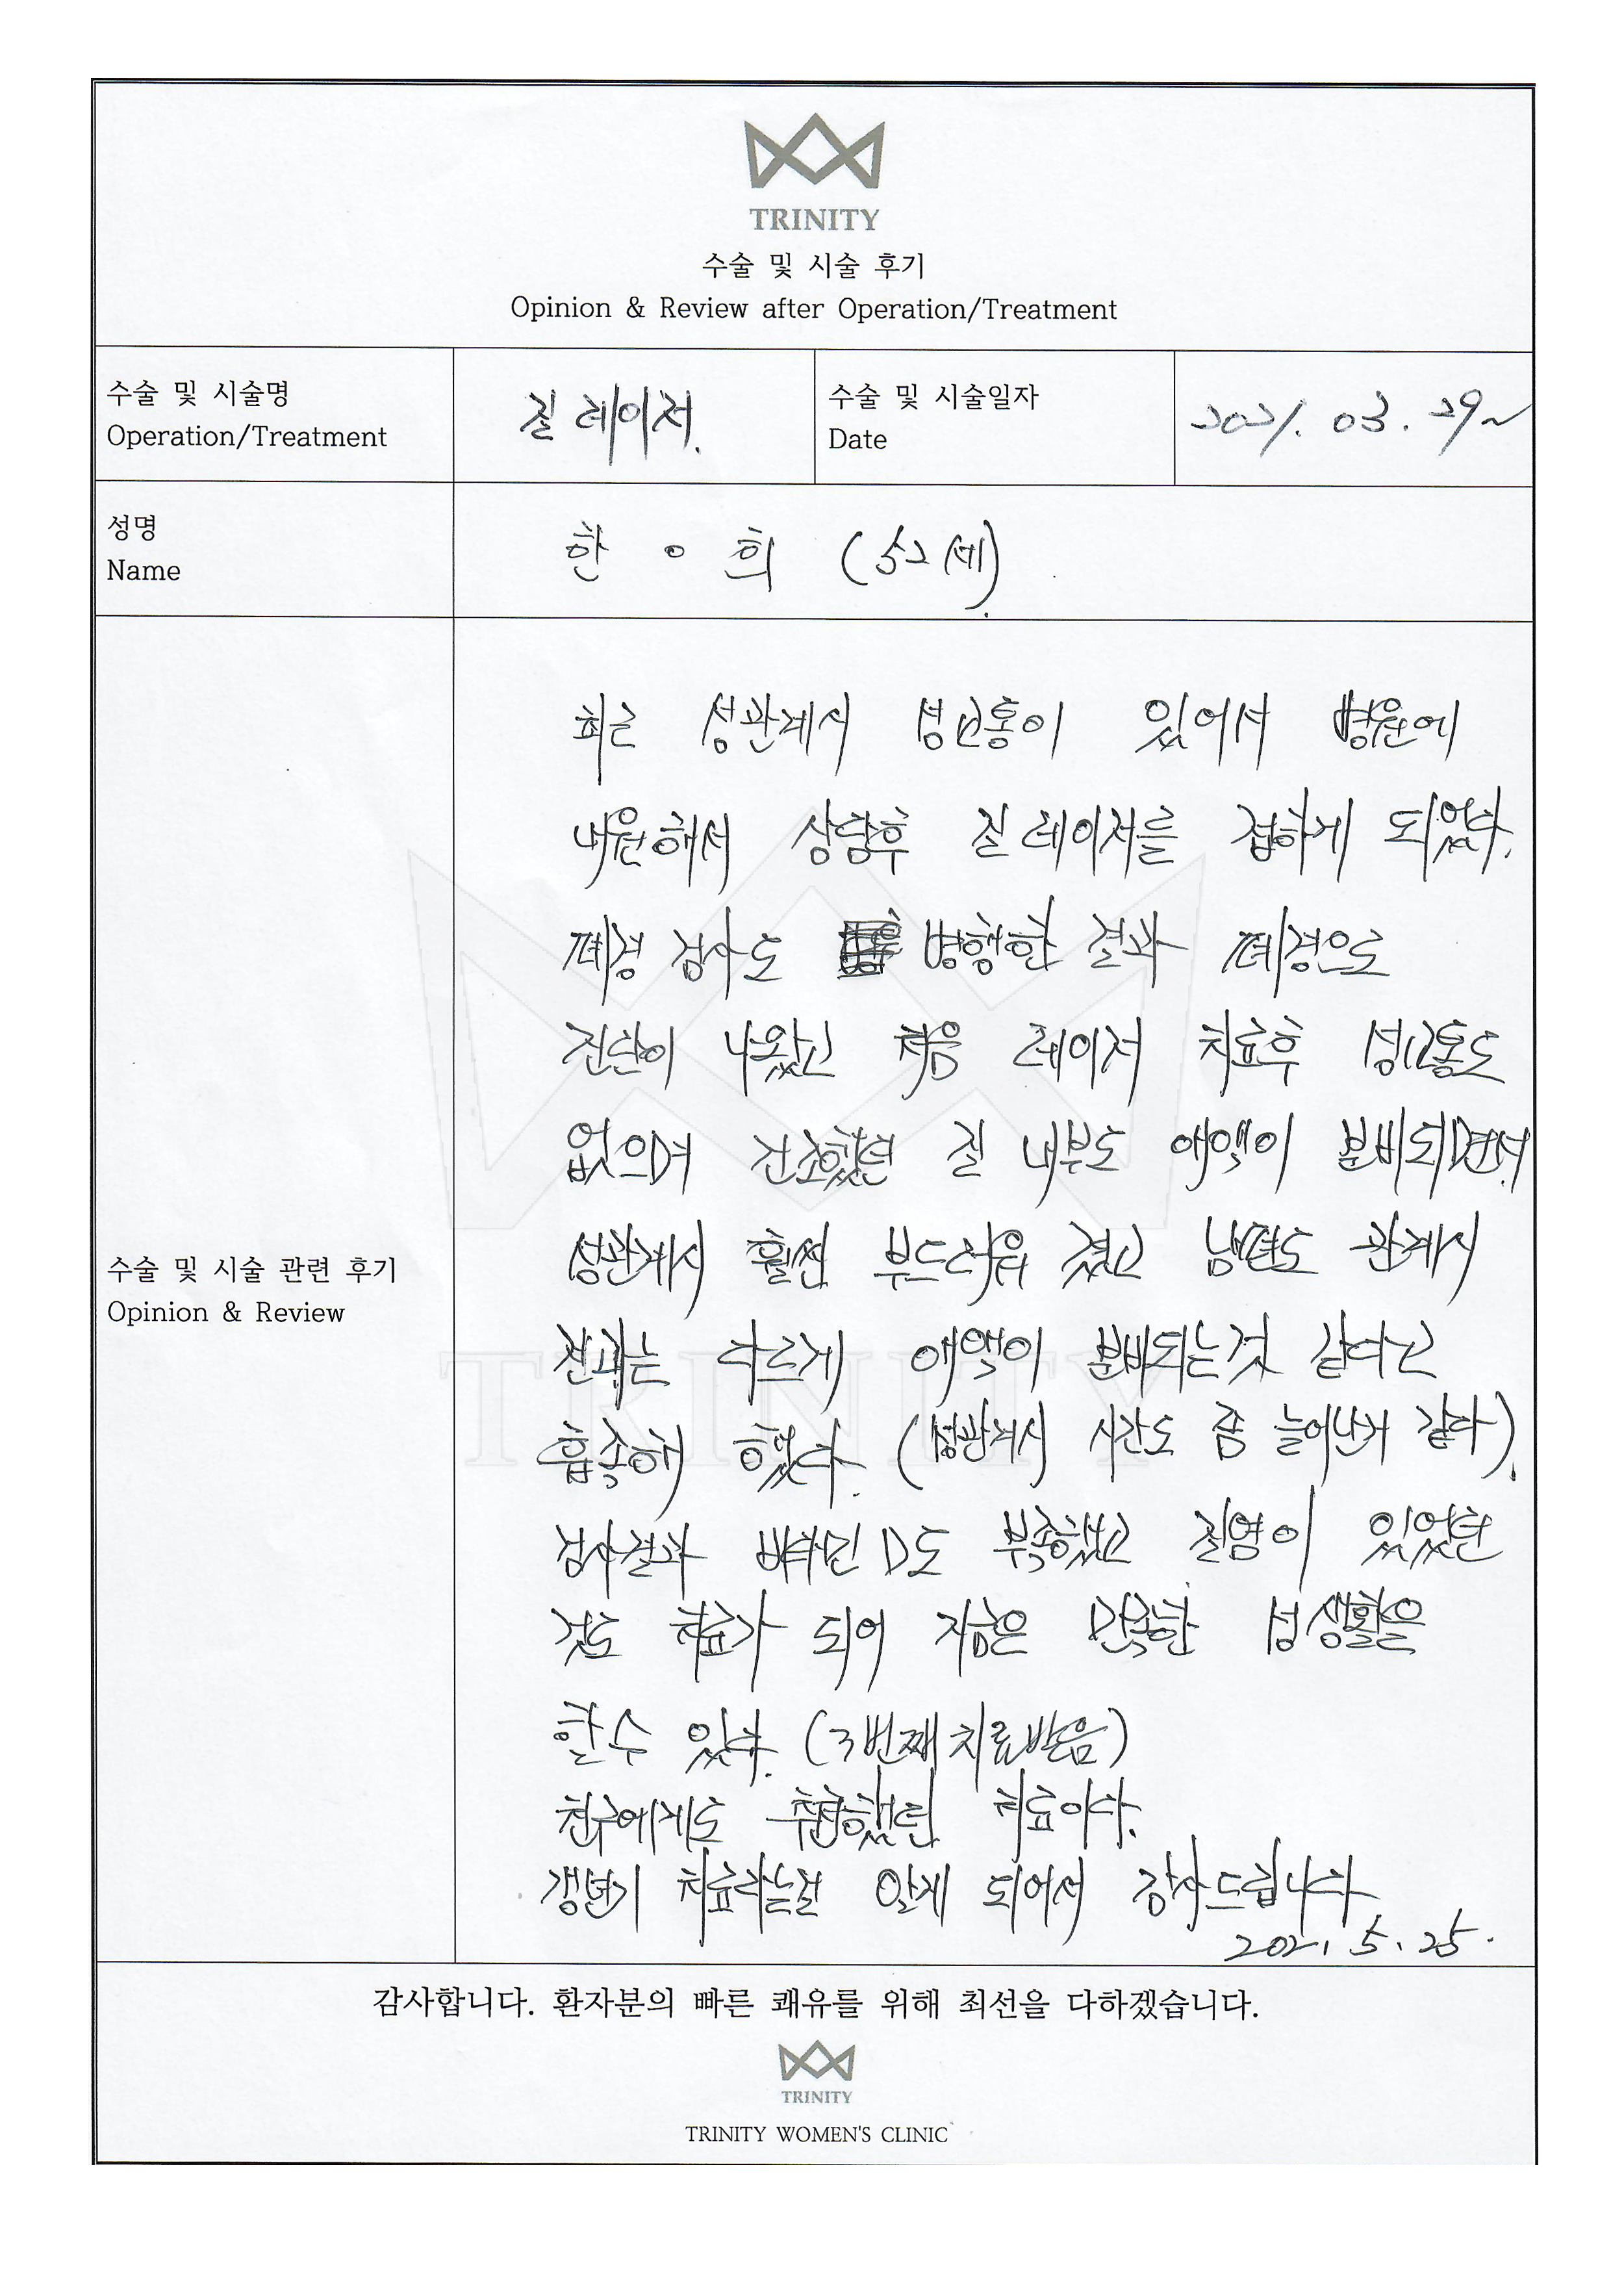 TRINITY
수술 및 시술 후기
Opinion & Review after Operation/Treatment
수술 및 시술명
Operation/Treatment
질 레이저.
수술 및 시술일자
Date
2021. 03. 29~
성명
Name
한 ㅇ 희 (52세).
수술 및 시술 관련 후기
Opinion & Review
최근 성관계시 성교통이 있어서 병원에
내원해서 상담후 질 레이저를 접하게 되었다.
폐경 검사도 병행한 결과 폐경으로
진단이 나왔고 처음 레이저 치료후 성교통도
없으며 건조했던 질 내부도 애액이 분비되면서
성관계시 훨씬 부드러워 졌고 남편도 관계시
전과는 다르게 애액이 분비되는것 같다고
흡족해 했다. (성관계시 시간도 좀 늘어난거 같다).
검사결과 비타민 D도 부족했고 질염이 있었던
것도 치료가 되어 지금은 만족한 성생활을
할수 있다. (3번째 치료받음)
친구에게도 추천했던 치료이다.
갱년기 치료라는걸 알게 되어서 감사드립니다
2021. 5. 25.
감사합니다. 환자분의 빠른 쾌유를 위해 최선을 다하겠습니다.
TRINITY
TRINITY WOMEN'S CLINIC
TRINITY